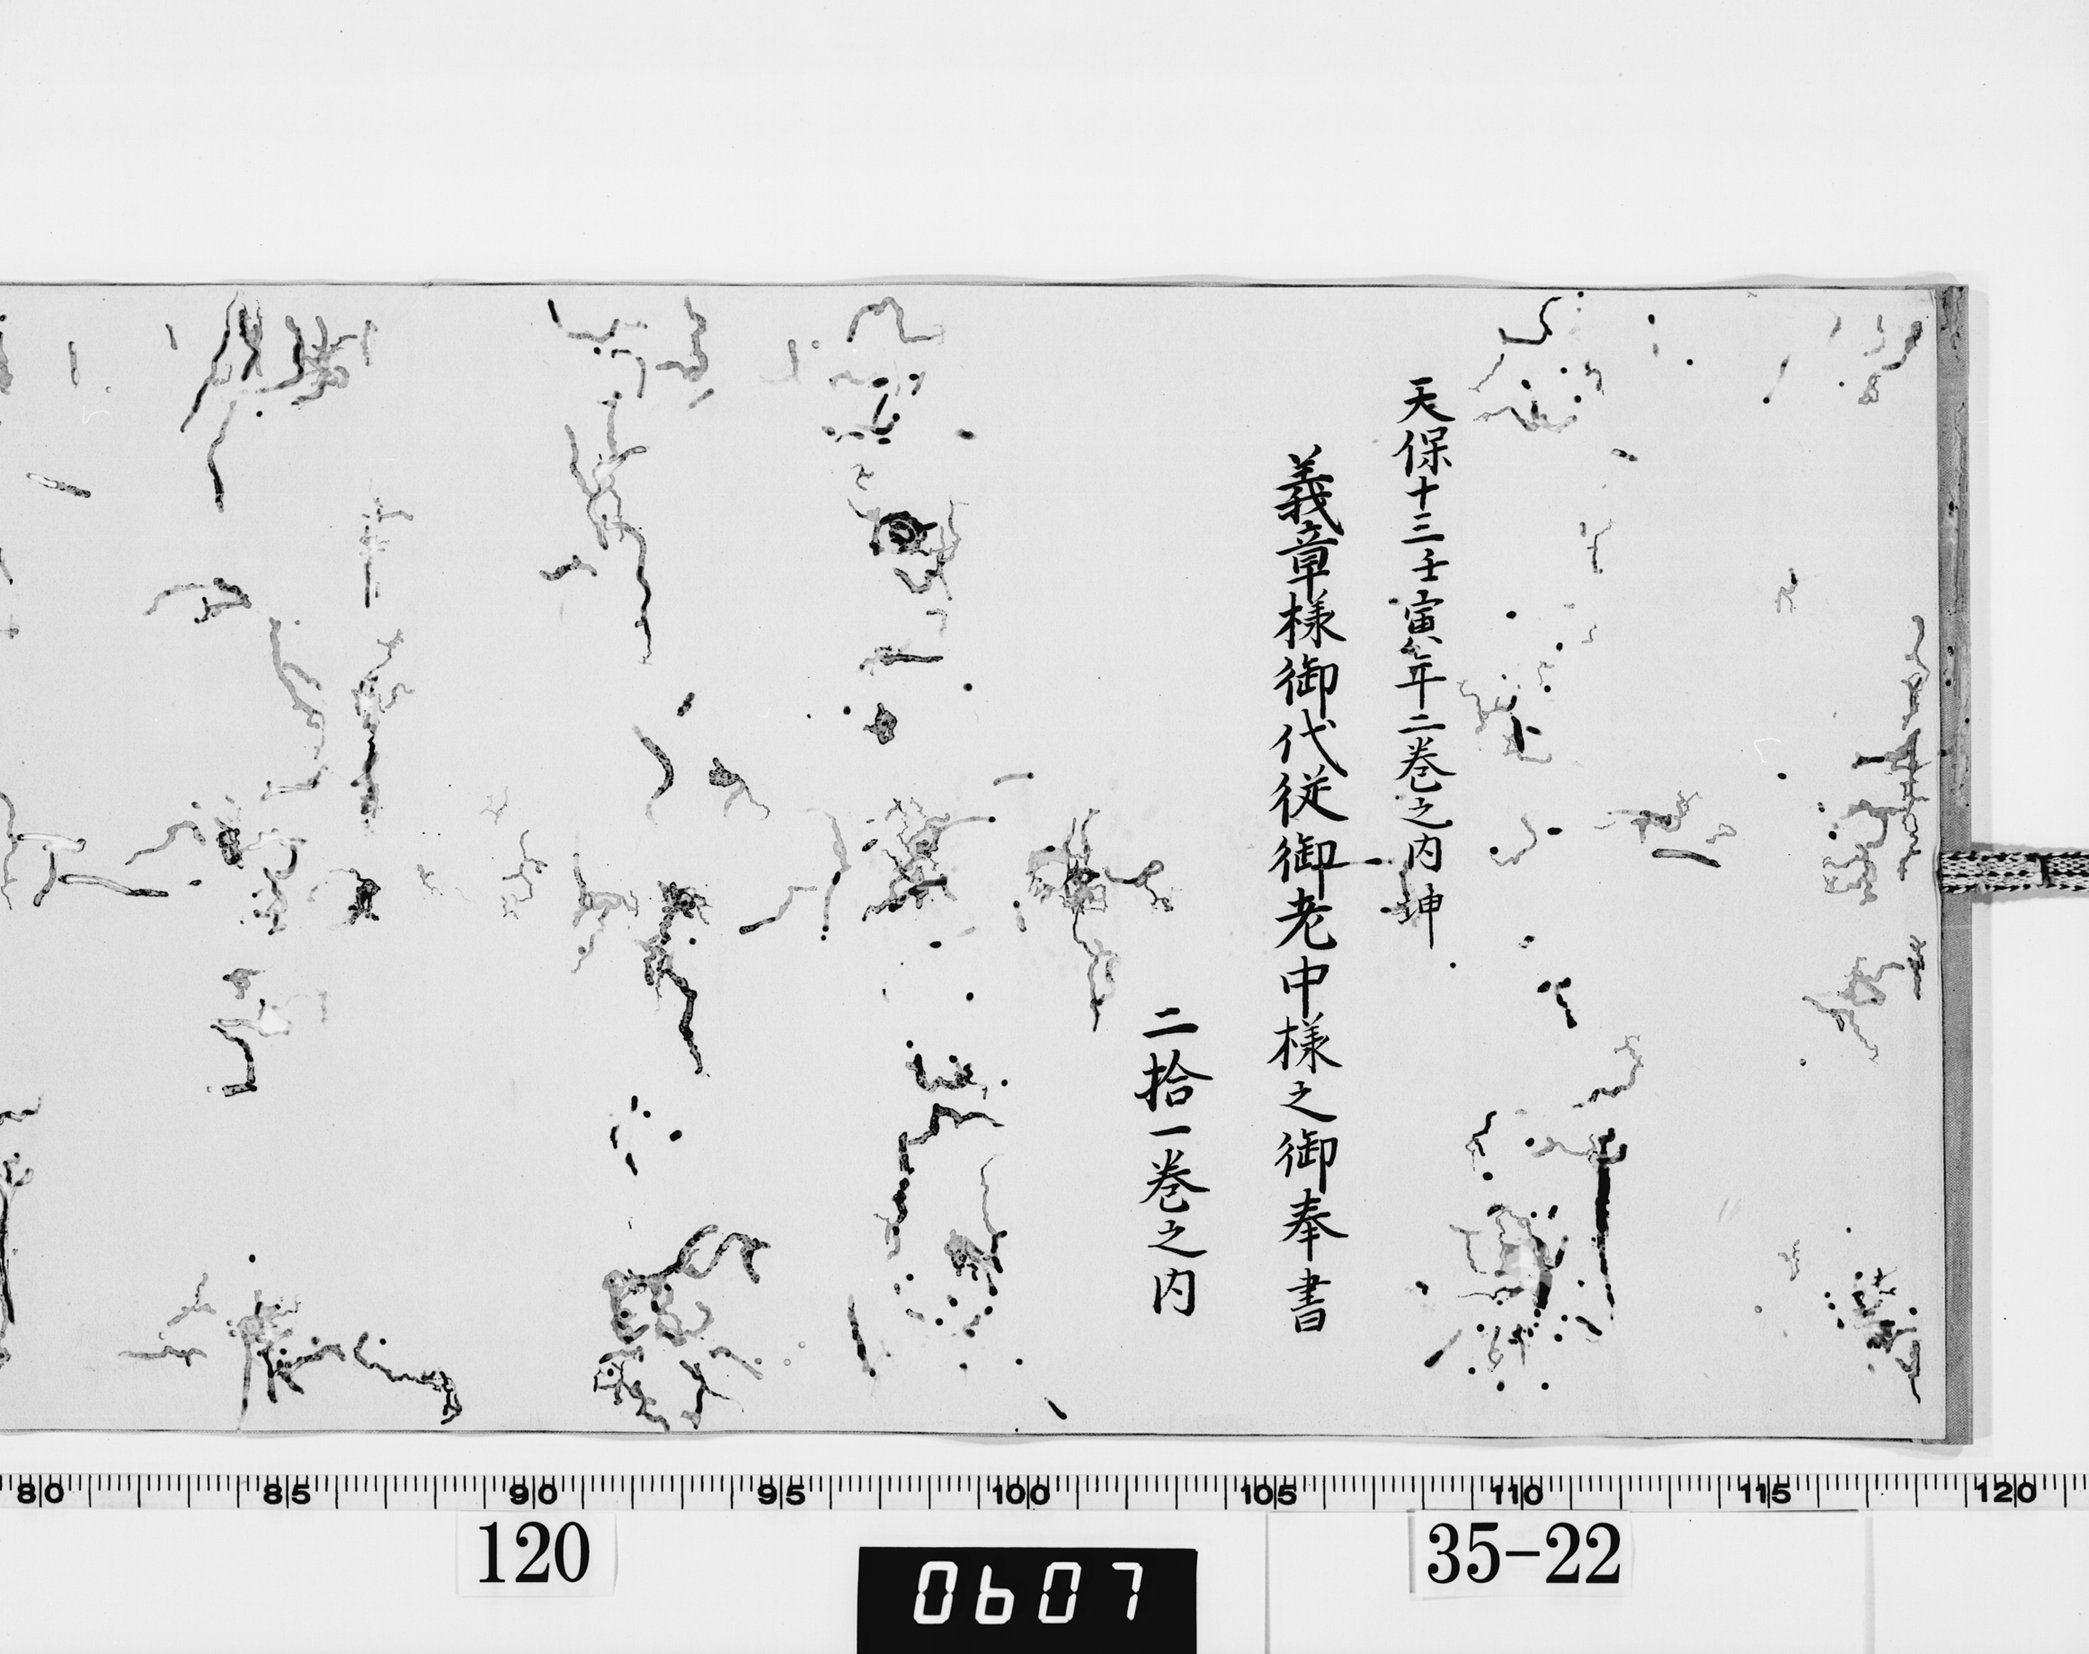 天保十三壬寅年二巻之内坤
義章様御代従御老中様之御奉書
二拾一巻之内
80 85 90 95 100 105 110 115 120
120
0607
35-22